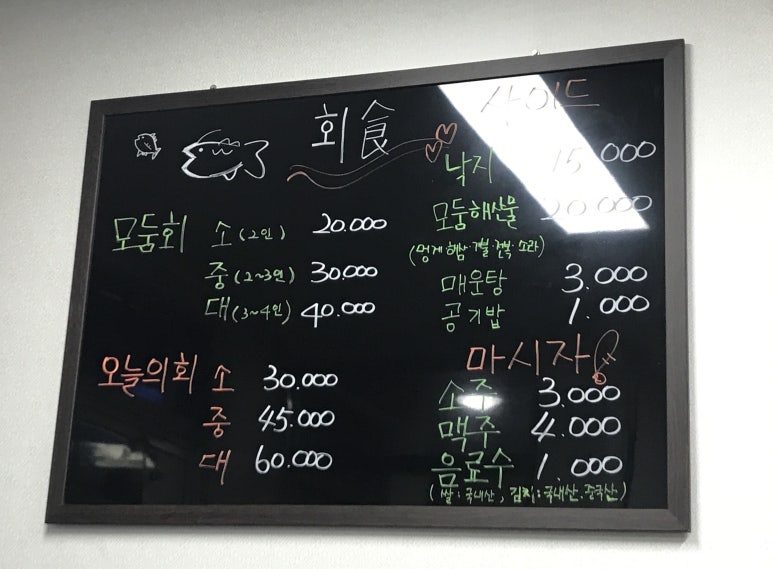 회食
모둠회 소 (2인) 20.000
중 (2~3인) 30.000
대 (3~4인) 40.000
오늘의회 소 30.000
중 45.000
대 60.000
사이드
낙지 15.000
모둠해산물 20.000
(멍게·해삼·개불·전복·소라)
매운탕 3.000
공기밥 1.000
마시자!
소주 3.000
맥주 4.000
음료수 1.000
(쌀:국내산, 김치:국내산.중국산)